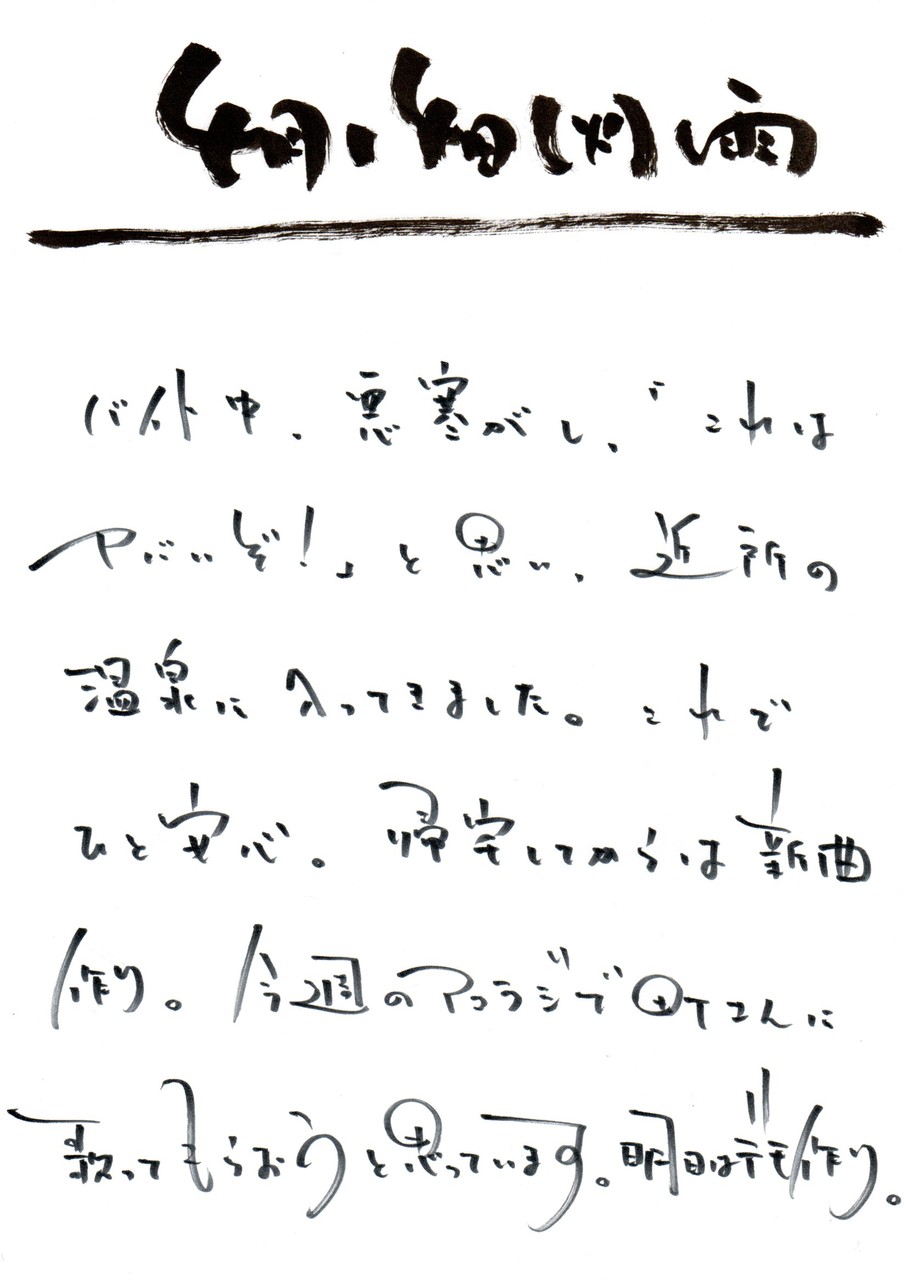 4月14日(火) 雨
バイト中、悪寒がし、「これは
ヤバいぞ!」と思い、近所の
温泉に入ってきました。これで
ひと安心。帰宅してからは新曲
作り。今週のアコラジで さんに
歌ってもらおうと思っています。明日はデモ作り。